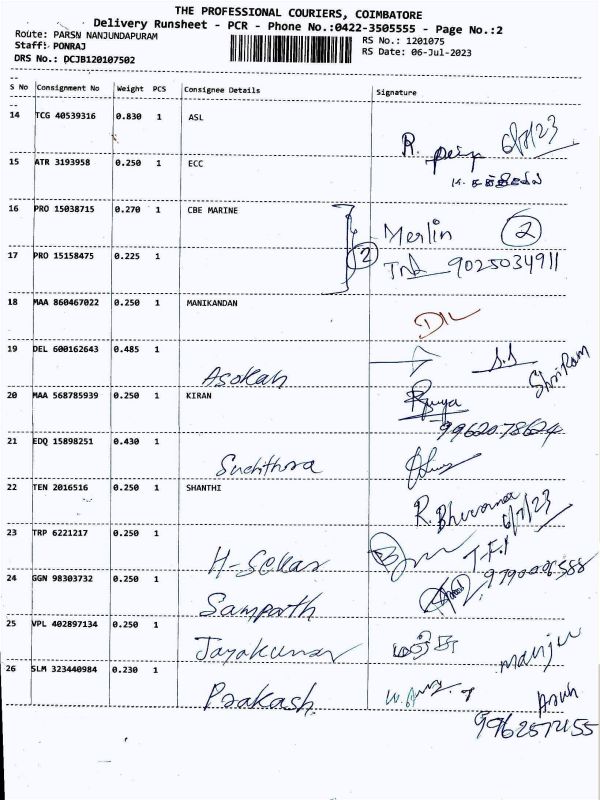 THE PROFESSIONAL COURIERS, COIMBATORE
Delivery Runsheet - PCR - Phone No.:0422-3505555 - Page No.:2
Route: PARSN NANJUNDAPURAM
RS No.: 1201075
Staff: PONRAJ
RS Date: 06-Jul-2023
DRS No.: DCJB120107502
S No Consignment No Weight PCS Consignee Details Signature
14 TCG 40539316 0.830 1 ASL
R. 6/7/23
15 ATR 3193958 0.250 1 ECC
16 PRO 15038715 0.270 1 CBE MARINE
Merlin 2
17 PRO 15158475 0.225 1
2 9025034911
18 MAA 860467022 0.250 1 MANIKANDAN
19 DEL 600162643 0.485 1
Asokan S.S ShriRam
20 MAA 568785939 0.250 1 KIRAN
9962078624
21 EDQ 15898251 0.430 1
Suchithra
22 TEN 2016516 0.250 1 SHANTHI
R. Bhuvana 6/7/23
23 TRP 6221217 0.250 1
H-Sekar
24 GGN 98303732 0.250 1
Sampath
25 VPL 402897134 0.250 1
Jayakumar manju
26 SLM 323440984 0.230 1
Prakash Arun